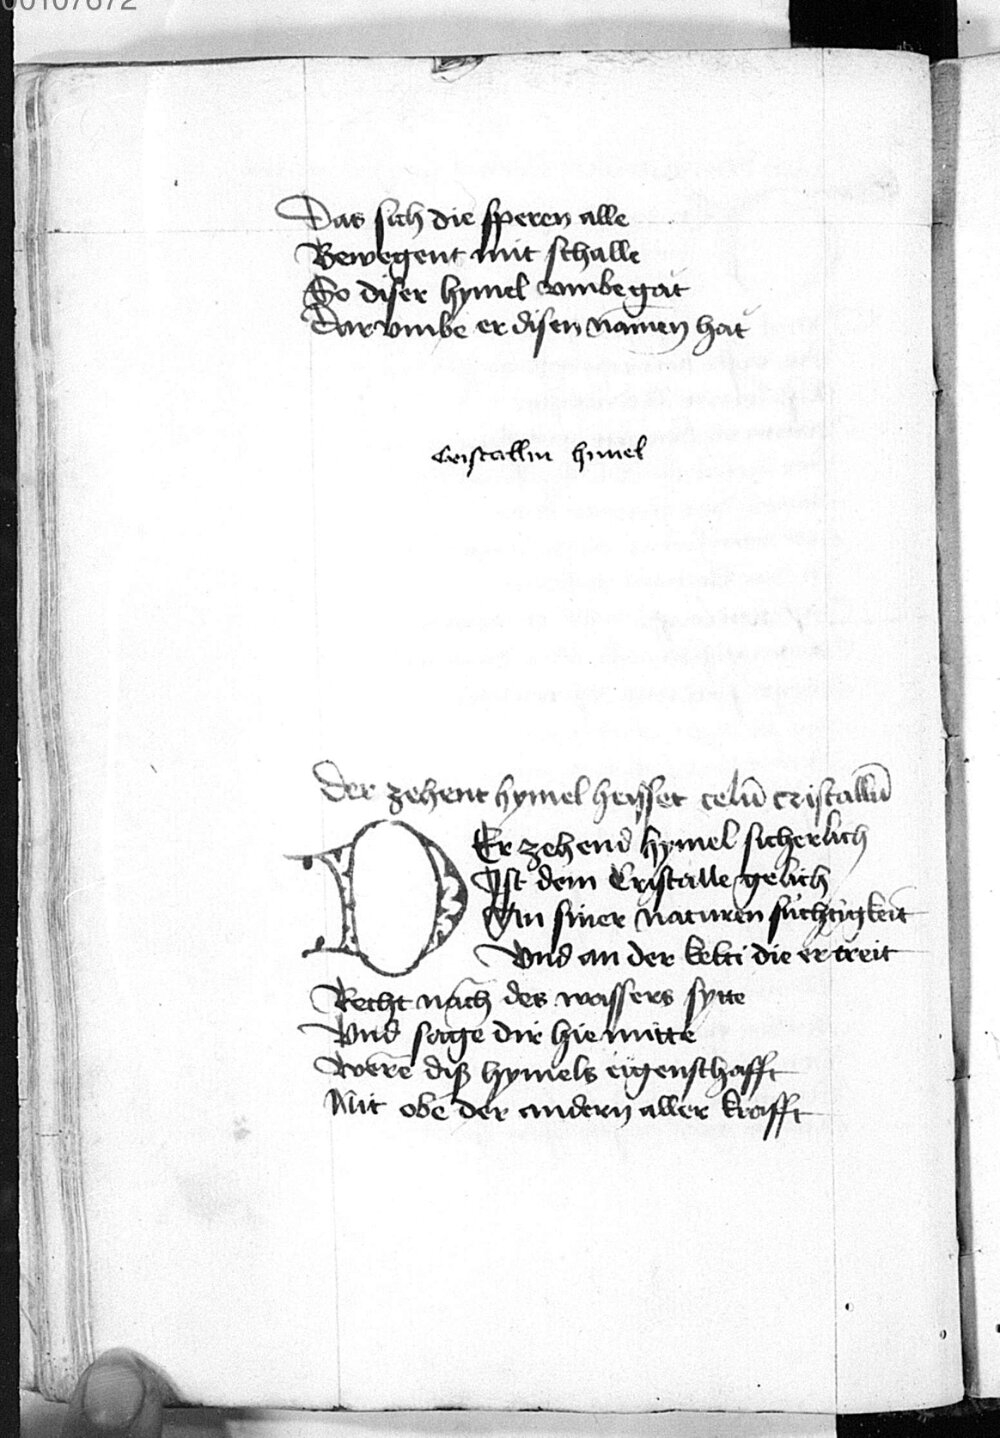 00107672
Das sich die speren alle
Bewegent mit schalle
So diser hymel vmbe gat
Dar vmbe er disen namen hat
Cristallin himel
Der zehent hymel heysset celū cristallū
DEr zehend hymel sicherlich
Ist dem Cristalle gelich
An siner naturen fúchtigkeit
Vnd an der kelti die er treit
Recht nach des wassers sytte
Vnd sage dir hie mitte
Were diß hymels eigenschafft
Nit obe der andern aller krafft